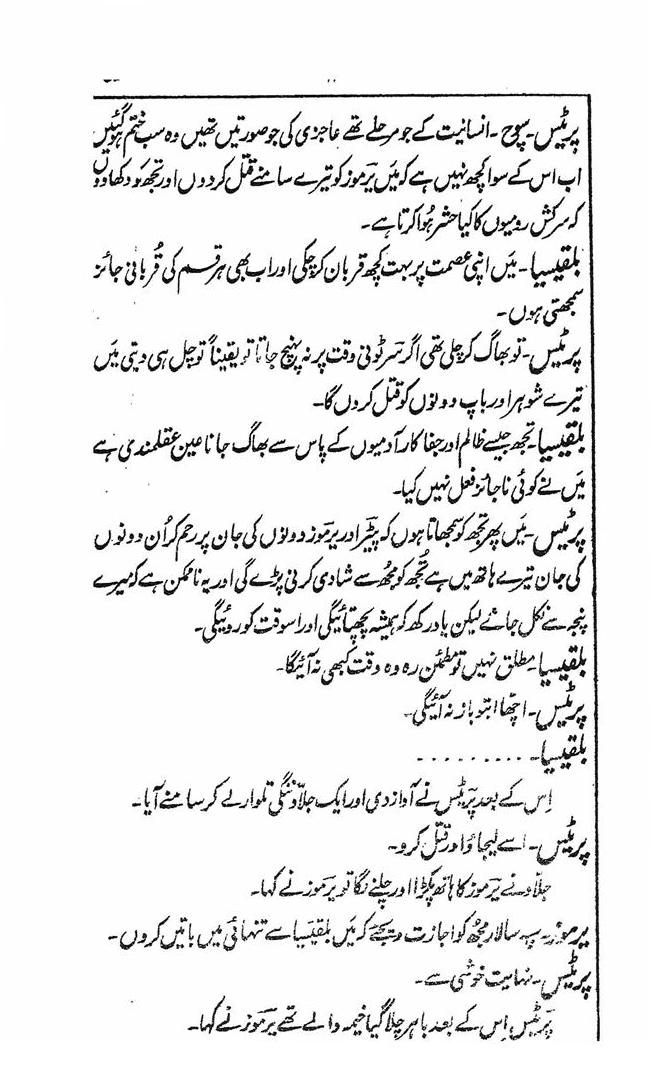 پریٹس۔ سوچ ۔ انسانیت کے جو مرحلے تھے عاجزی کی جو صورتیں تھیں وہ سب ختم ہو گئیں
اب اس کے سوا کچھ نہیں ہے کہ میں یرموز کو تیرے سامنے قتل کر دوں اور تجھ کو دکھا دوں
کہ سرکش رومیوں کا کیا حشر ہُوا کرتا ہے۔
بلقیسیا۔ میں اپنی عصمت پر بہت کچھ قربان کر چکی اور اب بھی ہر قسم کی قُربانی جائز
سمجھتی ہوں۔
پریٹس۔ تو بھاگ کر چلی تھی اگر سرٹونی وقت پر نہ پہنچ جاتا تو یقیناً تو چل ہی دیتی میں
تیرے شوہر اور باپ دونوں کو قتل کر دوں گا۔
بلقیسیا۔ تجھ جیسے ظالم اور جفا کار آدمیوں کے پاس سے بھاگ جانا عین عقلمندی ہے
میں نے کوئی ناجائز فعل نہیں کیا۔
پریٹس۔ میں پھر تجھ کو سمجھاتا ہوں کہ پیٹر اور یرموز دونوں کی جان پر رحم کر اُن دونوں
کی جان تیرے ہاتھ میں ہے تُجھ کو مجھ سے شادی کرنی پڑے گی اور یہ ناممکن ہے کہ میرے
پنجہ سے نکل جائے لیکن یاد رکھ کہ ہمیشہ پچتائیگی اور اسوقت کو روئیگی۔
بلقیسیا۔ مطلق نہیں تو مطمئن رہ وہ وقت کبھی نہ آئیگا۔
پریٹس۔ اچھا اب تو باز نہ آئیگی۔
بلقیسیا۔ ۔ ۔ ۔ ۔ ۔ ۔ ۔ ۔ ۔
اِس کے بعد پریٹس نے آواز دی اور ایک جلّاد ننگی تلوار لے کر سامنے آیا۔
پریٹس۔ اسے لیجاؤ اور قتل کرو۔
جلّاد نے یرموز کا ہاتھ پکڑا اور چلنے لگا تو یرموز نے کہا۔
یرموز۔ سپہ سالار مجھ کو اجازت دیجئے کہ میں بلقیسیا سے تنہائی میں باتیں کروں۔
پریٹس۔ نہایت خوشی سے۔
پریٹس اِس کے بعد باہر چلا گیا خیمہ والے تھے یرموز نے کہا۔